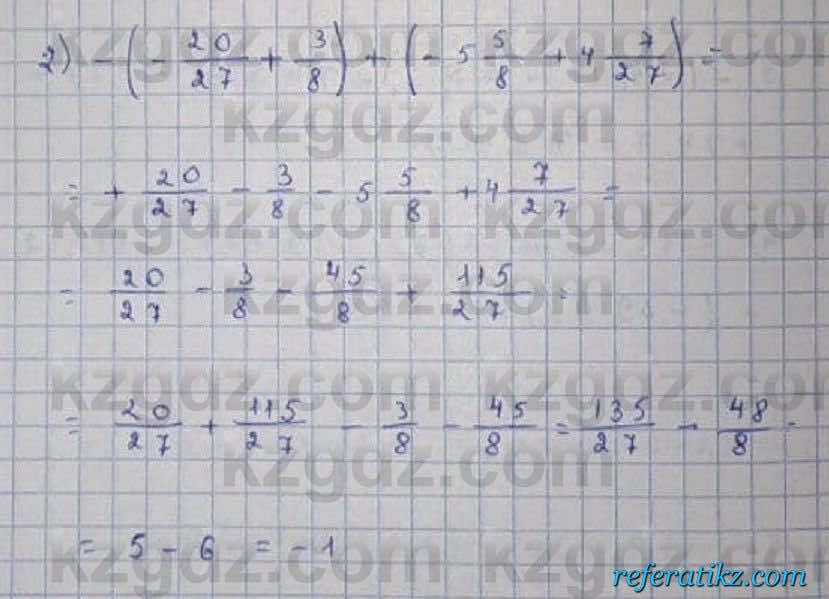 2) -(-20/27 + 3/8) + (-5 5/8 + 4 7/27) =
= + 20/27 - 3/8 - 5 5/8 + 4 7/27 =
= 20/27 - 3/8 - 45/8 + 115/27 =
= 20/27 + 115/27 - 3/8 - 45/8 = 135/27 - 48/8 =
= 5 - 6 = -1
kzgdz.com
referatikz.com